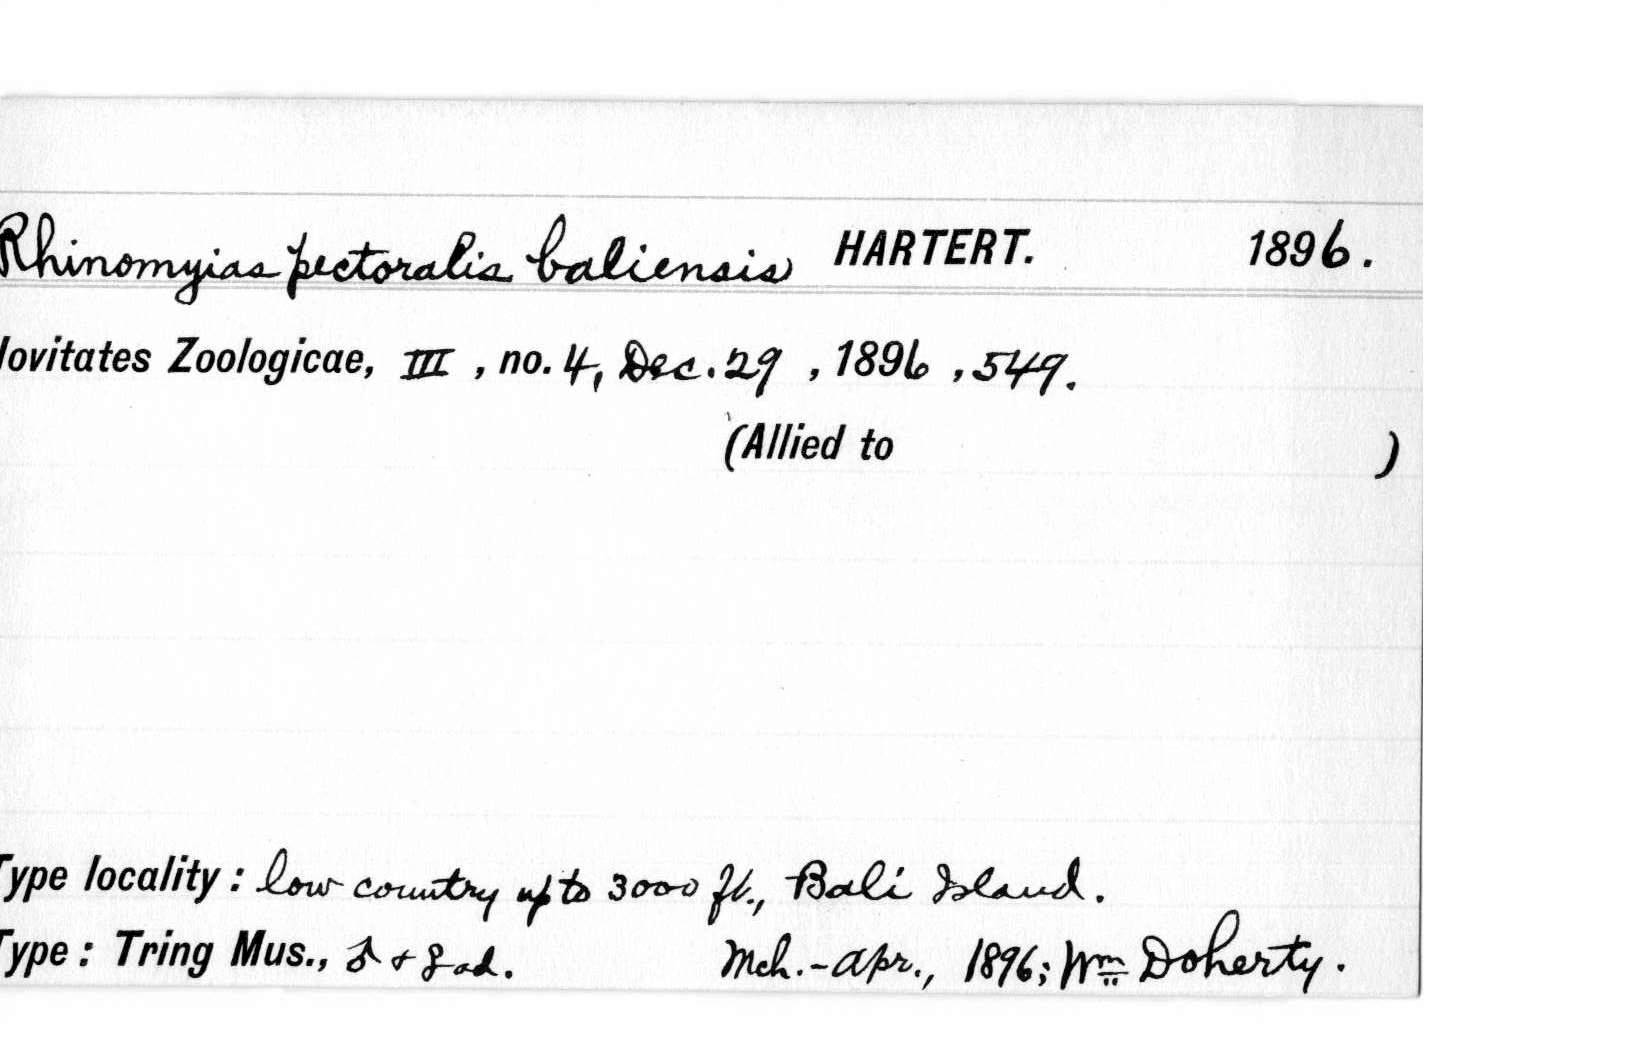 Rhinomyias pectoralis baliensis HARTERT. 1896.
ovitates Zoologicae, III, no. 4, Dec. 29, 1896, 549.
(Allied to )
Type locality: low country up to 3000 ft., Bali Island.
Type: Tring Mus., ♂ + ♀ ad. Mch.-Apr., 1896; Wm Doherty.